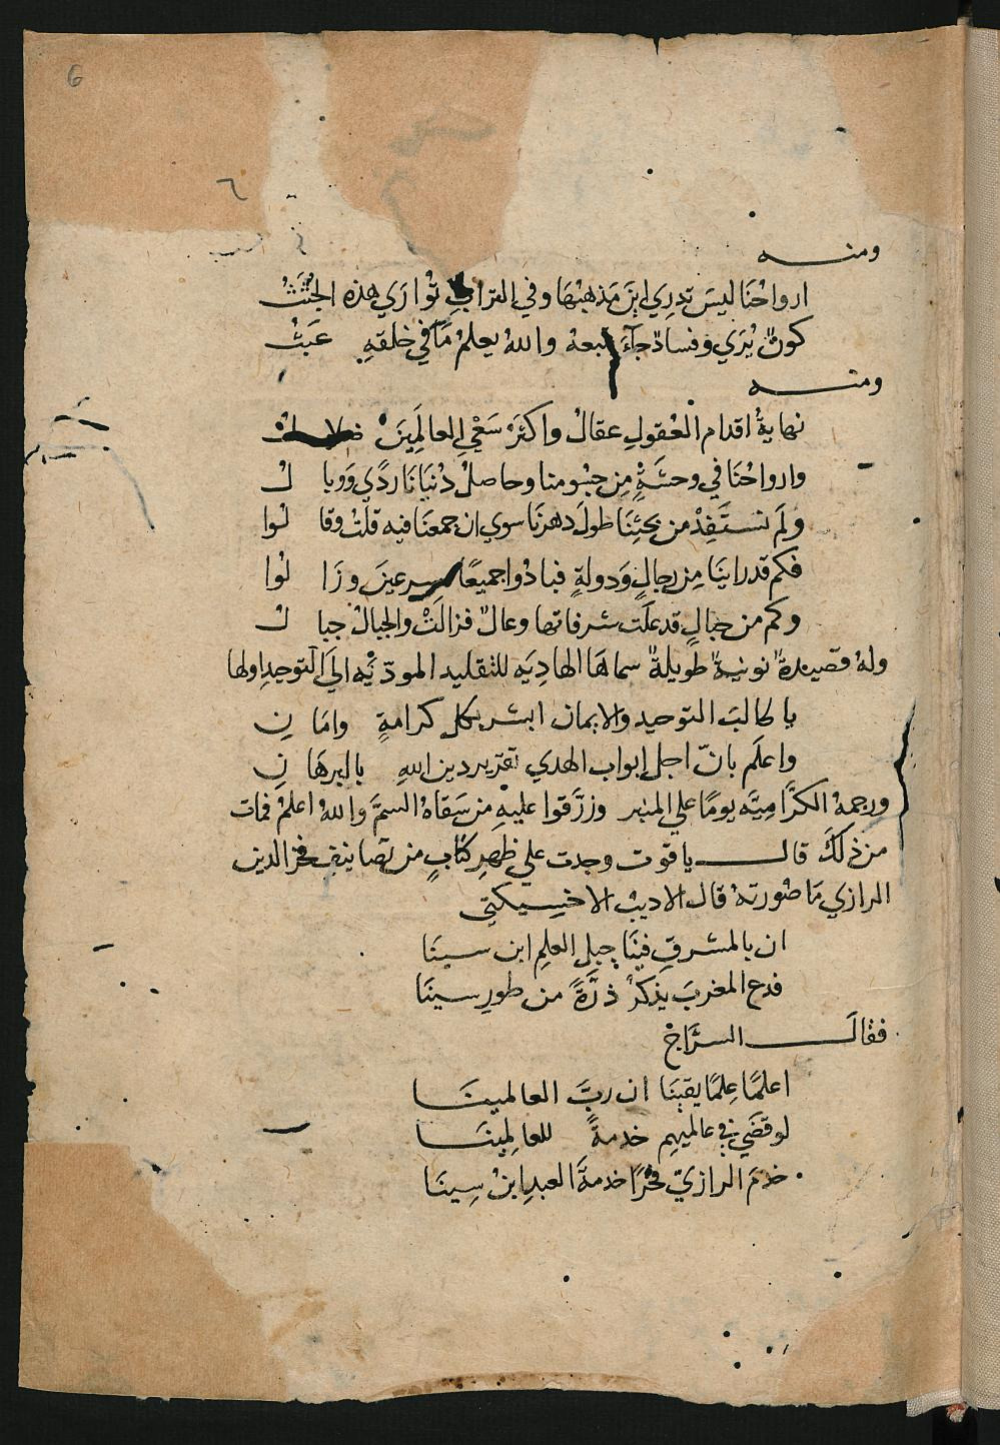 6
٦
ومنه
ارواحُنَا ليسَ تدرِي اينَ مَذهبُهَا وفي الترابِ تُوارَي هذه الجُثَثُ
كونٌ يُرَي وفسادٌ جآءَ يتبعهُ واللهُ يعلمُ مَا في خلقهِ عَبَثُ
ومنه
نهايةُ اقدام العُقولِ عقالُ واكثرُ سَعْيِ العالَمِينَ ضلالُ
وارواحُنَا في وحشَةٍ مِن جسُومنا وحاصلُ دُنيَانَا ردًي وَوبالُ
ولَم نستَفِدْ من بحثِنَا طولَ دهرنَا سوي ان جمعنَا فيه قلتُ وقالوا
فكم قد راينَا مِن رجالٍ وَدولةٍ فبادُوا جميعًا مسرعينَ وزَالُوا
وكم من جبالٍ قد علَت شرفاتها رجالٌ فزالُوا والجبالُ جبالُ
وله قصيدةٌ نونيةٌ طويلةٌ سماهَا الهادِيَه للتقليد المودّيَه الي التوحيدِ اولها
يا طالبَ التوحيد والايمان ابشر بكل كرامةٍ وامَانِ
واعلَم بانّ اجل ابواب الهدي تقرير دين اللهِ بالبرهَانِ
ورجمهُ الكرَّاميَّه يومًا علي المنبر وزرَّقوا عليهِ من سَقَاهُ السمَّ واللهُ اعلمُ فمات
من ذلكَ قال ياقوت وجدت علي ظهرِ كتابٍ من تصانيف فخر الدين
الرازي مَا صُورتهُ قال الاديبُ الاخسيكتي
ان بالمشرقِ فينَا جبل العلمِ ابن سينَا
فدع المغربَ يذكرُ ذرَّةً من طورِ سينَا
فقالَ السرَّاجُ
اعلمَا عِلمًا يقينَا ان ربَّ العالمينَا
لو قضَي في عالميهِم خدمةً للعالِمينَا
خدَم الرازيّ فخرًا خدمةَ العبدِ ابنُ سِينَا